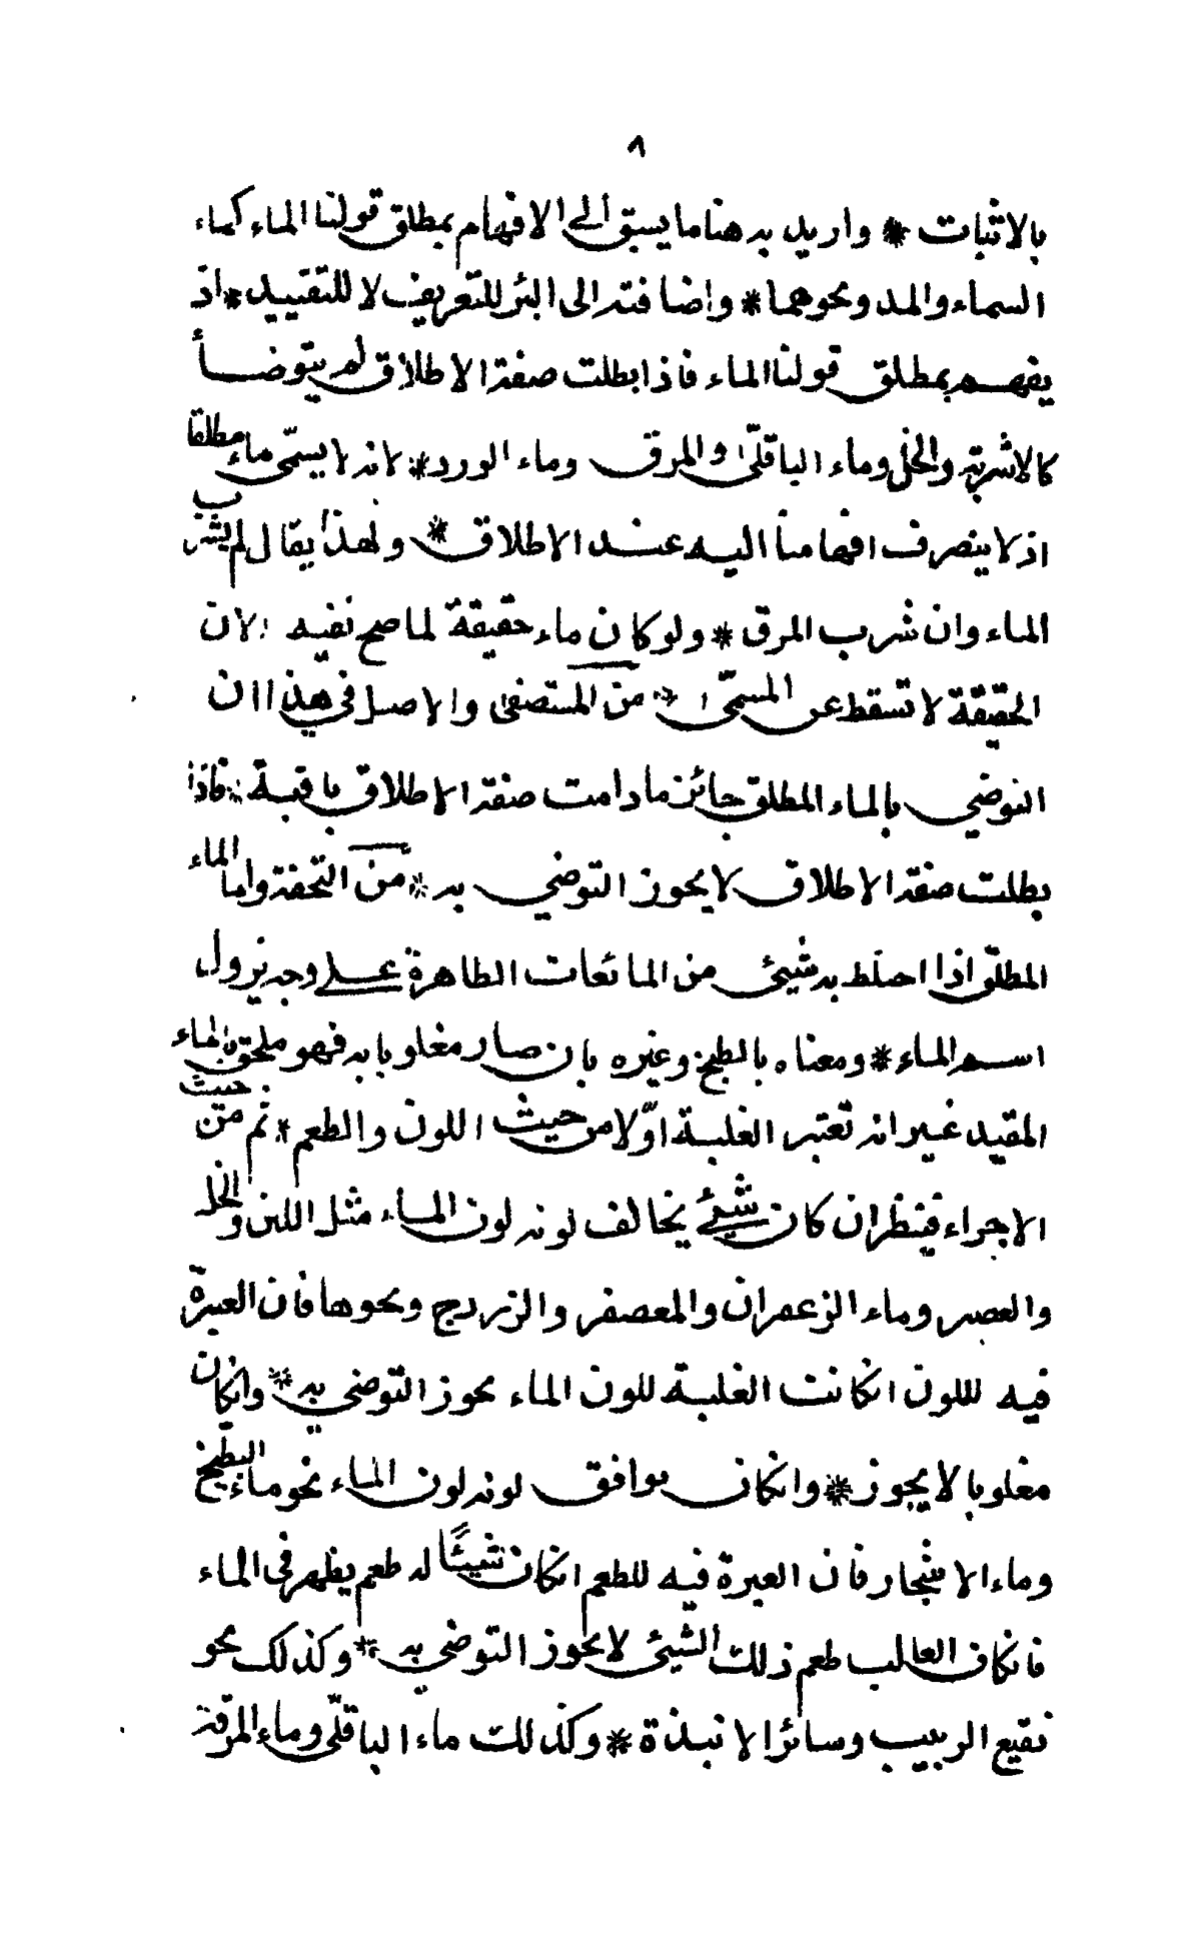 ٨
بالاثبات * واريد به هنا ما يسبق الى الافهام بمطلق قولنا الماء كماء
السماء والمد ونحوهما * واضافته الى البئر للتعريف لا للتقييد * اذ
يفهم بمطلق قولنا الماء فاذا بطلت صفة الاطلاق لم يتوضأ
كالاشربة والخل وماء الباقلّى والمرق وماء الورد * لانه لا يسمّى ماء مطلقا
اذ لا ينصرف افهامنا اليه عند الاطلاق * ولهذا يقال لم يشرب
الماء وان شرب المرق * ولو كان ماء حقيقة لما صح نفيه لان
الحقيقة لا تسقط عن المسمّى * من المستصفى والاصل في هذا ان
التوضي بالماء المطلق جائز ما دامت صفة الاطلاق باقية * فاذا
بطلت صفة الاطلاق لا يجوز التوضي به * من التحفة واما الماء
المطلق اذا اختلط به شيئ من المائعات الطاهرة على وجه يزول
اسم الماء * ومعناه بالطبخ وغيره بان صار مغلوبا به فهو ملحق بالماء
المقيد غير انه تعتبر الغلبة اوّلا من حيث اللون والطعم * ثم من حيث
الاجراء فينظر ان كان شيئ يخالف لونه لون الماء مثل اللبن والخل
والعصير وماء الزعفران والمعصفر والزردج ونحوها فان العبرة
فيه للون انكانت الغلبة للون الماء يجوز التوضي به * وانكان
مغلوبا لا يجوز * وانكان يوافق لونه لون الماء نحو ماء البطيخ
وماء الاشجار فان العبرة فيه للطعم انكان شيئًا له طعم يظهر في الماء
فانكان الغالب طعم ذلك الشيئ لا يجوز التوضي به * وكذلك نحو
نقيع الزبيب وسائر الانبذة * وكذلك ماء الباقلّى وماء المرقة